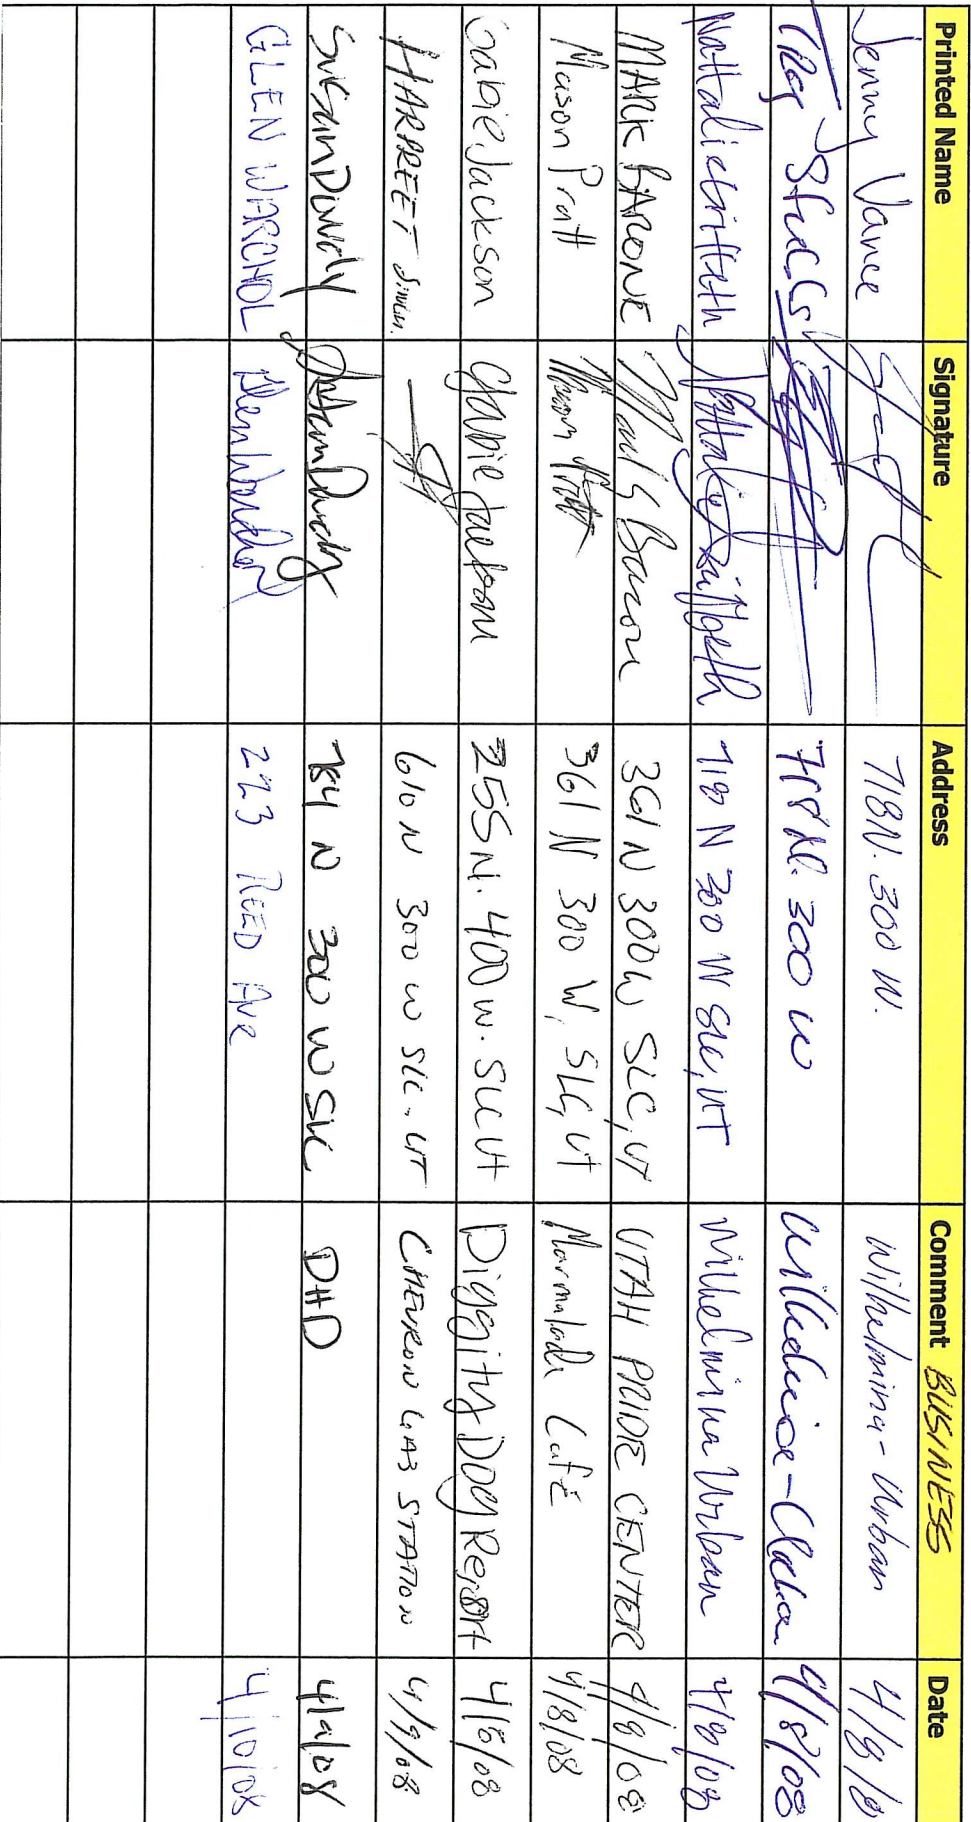 Printed Name Signature Address Comment BUSINESS Date
Jenny Vance 718 N. 300 W. Wilhelmina - Urban 4/8/0
718 N. 300 W 4/8/08
Nattalie Griffeth Nattalie Griffeth 718 N 300 W SLC, UT Wilhelmina Urban 4/8/08
MARK BARONE Mark S Barone 361 N 300 W SLC, UT UTAH PRIDE CENTER 4/8/08
Mason Pratt Mason Pratt 361 N 300 W, SLC, UT Marmalade Café 4/8/08
Gabie Jackson Gabie Jackson 255 N. 400 W. SLC UT Diggity Dog Resort 4/8/08
HARPREET 610 N 300 W SLC - UT CHEVRON GAS STATION 4/9/08
Susan 784 N 300 W SLC DHD 4/9/08
GLEN WARCHOL Glen Warchol 223 REED Ave 4/10/08